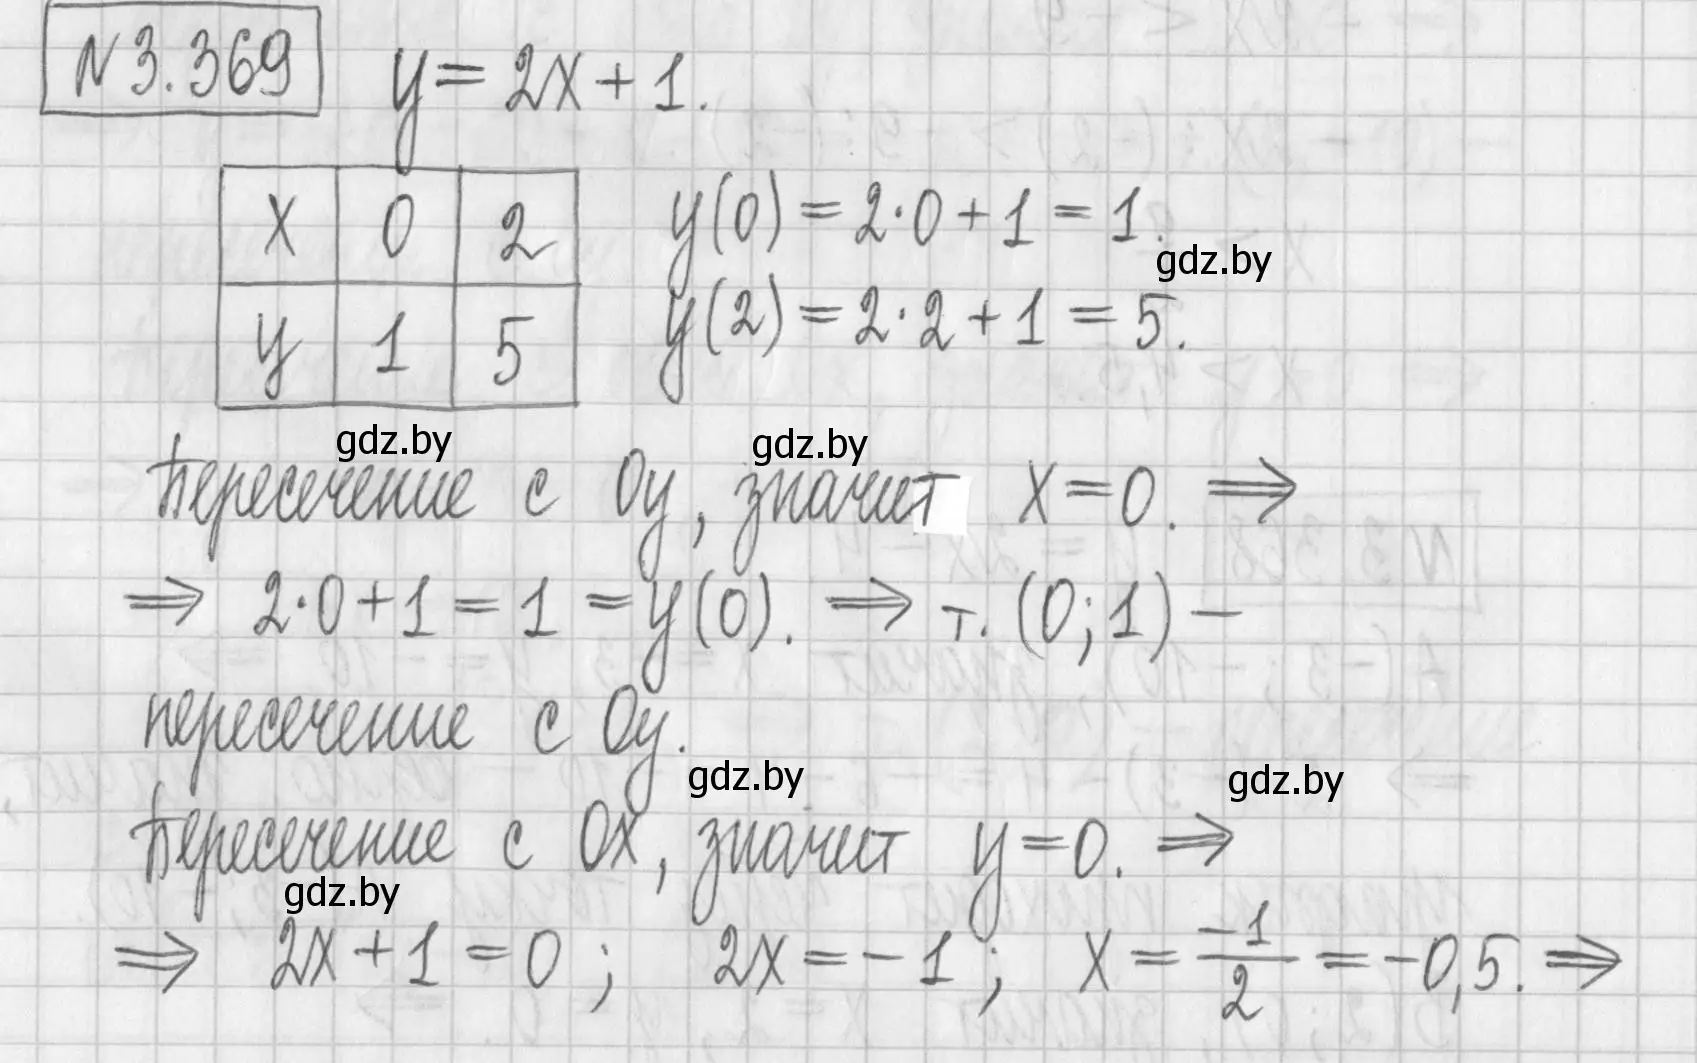 N 3.369 y = 2x + 1.
x 0 2 y(0) = 2·0 + 1 = 1.
gdz.by
y 1 5 y(2) = 2·2 + 1 = 5.
gdz.by gdz.by
Пересечение с Oy, значит x = 0. ⇒
⇒ 2·0 + 1 = 1 = y(0). ⇒ т. (0; 1) —
пересечение с Oy.
gdz.by gdz.by
Пересечение с Ox, значит y = 0. ⇒
gdz.by
⇒ 2x + 1 = 0; 2x = -1; x = -1/2 = -0,5. ⇒